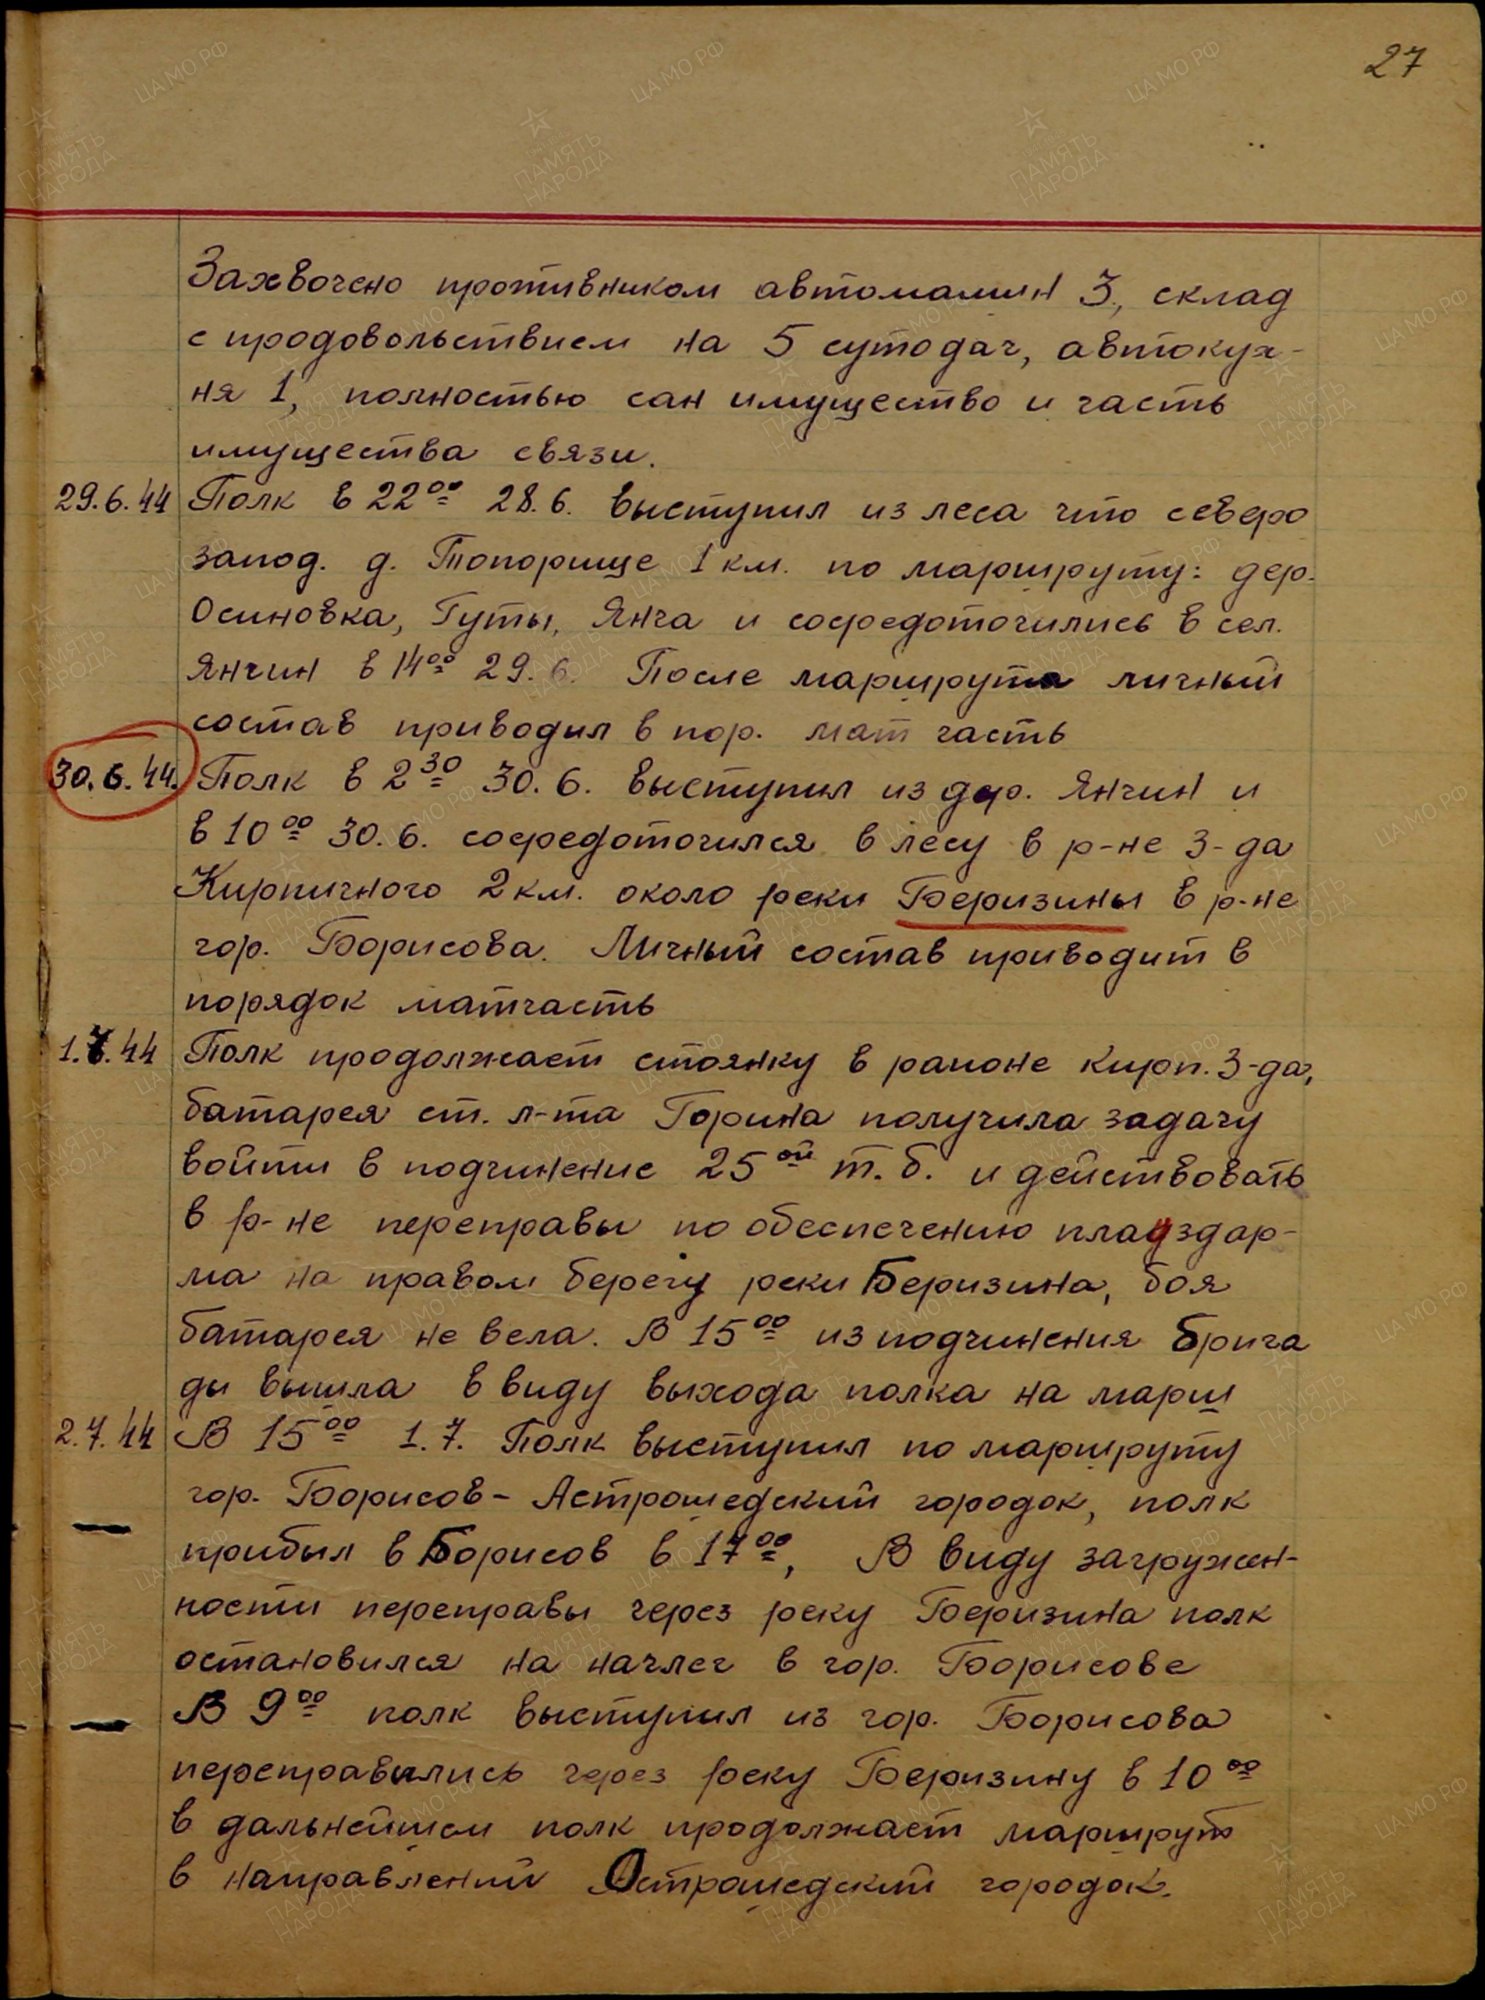 27
Захвочено противником автомашин 3, склад
с продовольствием на 5 сутодач, автокух-
ня 1, полностью сан имущество и часть
имущества связи.
29.6.44 Полк в 22⁰⁰ 28.6. выступил из леса что северо
запод. д. Топорище 1 км. по маршруту: дер.
Осиновка, Гуты, Янча и сосредоточились в сел.
Янчин в 14⁰⁰ 29.6. После маршрута личный
состав приводил в пор. мат часть
30.6.44. Полк в 2³⁰ 30.6. выступил из дер. Янчин и
в 10⁰⁰ 30.6. сосредоточился в лесу в р-не З-да
Кирпичного 2 км. около реки Беризины в р-не
гор. Борисова. Личный состав приводит в
порядок матчасть
1.7.44 Полк продолжает стоянку в районе кирп. З-да,
батарея ст. л-та Горина получила задачу
войти в подчинение 25ой т.б. и действовать
в р-не переправы по обеспечению плацздар-
ма на правом берегу реки Беризина, боя
батарея не вела. В 15⁰⁰ из подчинения брига
ды вышла в виду выхода полка на марш
2.7.44 В 15⁰⁰ 1.7. Полк выступил по маршруту
гор. Борисов - Астрошедский городок, полк
прибыл в Борисов в 17⁰⁰, В виду загружен-
ности переправы через реку Беризина полк
остановился на начлег в гор. Борисове
В 9⁰⁰ полк выступил из гор. Борисова
переправились через реку Беризину в 10⁰⁰
в дальнейшем полк продолжает маршрут
в направлений Острошедский городок.
ЦА МО РФ
ПАМЯТЬ
НАРОДА